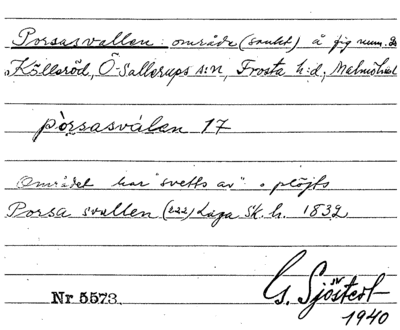 Porsasvallen: område (sankt) å fig num. 2
Källeröd, Ö. Sallerups s:n, Frosta h:d, Malmöhus
pòrsasválen 17
Området har "svetts av" o plöjts
Porsa svallen (222) Laga Sk. h. 1832
G. Sjöstedt
1940
Nr 5573.